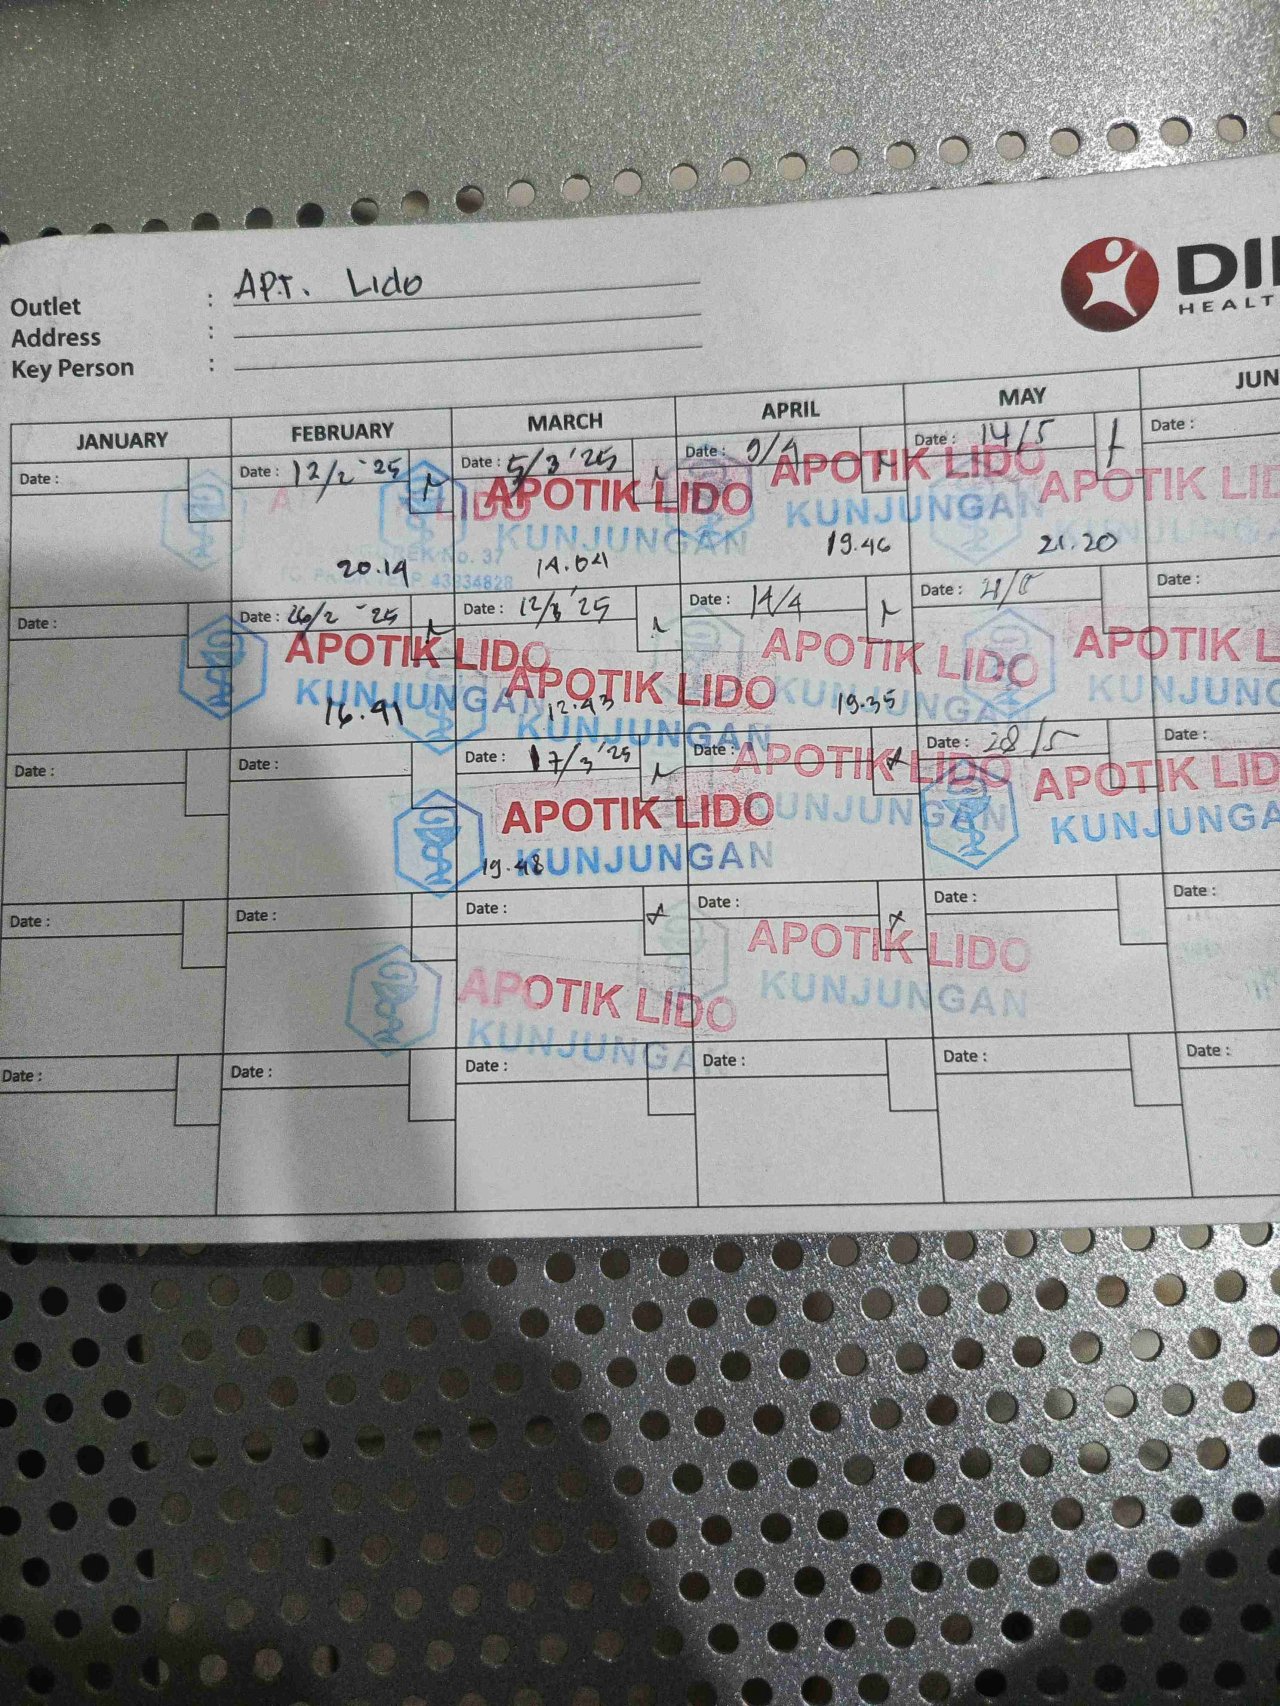 Outlet : APT. Lido
Address :
Key Person :
DI
HEALT
JANUARY FEBRUARY MARCH APRIL MAY JUN
Date : Date : 12/2 '25 Date : 5/3 '25 Date : 9/4 Date : 14/5 Date :
LIDO APOTIK LIDO APOTIK LIDO APOTIK LID
KUNJUNGAN KUNJUNGAN
No. 37
43834828
20.14 14.04 19.46 21.20
Date : Date : 26/2 '25 Date : 12/3 '25 Date : 14/4 Date : Date :
APOTIK LIDO APOTIK LIDO APOTIK LIDO APOTIK L
KUNJUNGAN KUNJUNGAN KUNJUNGA KUNJUNG
16.41 12.43 19.35
Date : Date : Date : 17/3 '25 Date : Date : 28/5 Date :
APOTIK LIDO APOTIK LIDO APOTIK LID
KUNJUNGAN KUNJUNGAN KUNJUNGA
19.48
Date : Date : Date : Date : Date : Date :
APOTIK LIDO APOTIK LIDO
KUNJUNGA KUNJUNGAN
Date : Date : Date : Date : Date : Date :